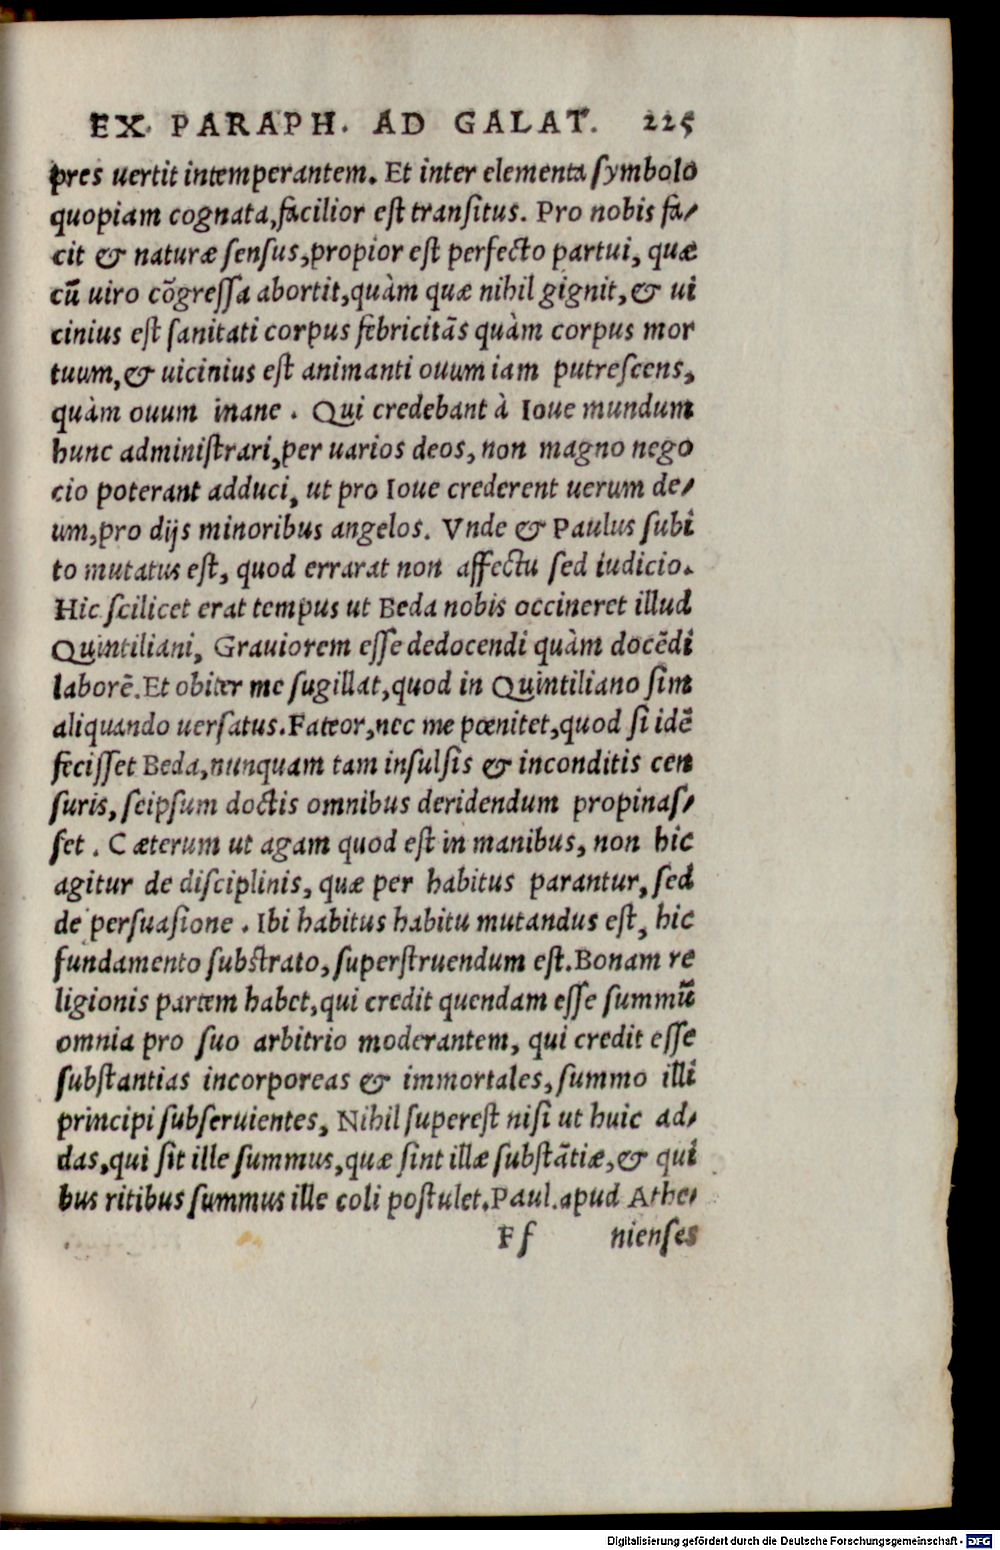 EX PARAPH. AD GALAT. 225
pres uertit intemperantem. Et inter elementa symbolo
quopiam cognata, facilior est transitus. Pro nobis fa-
cit & naturæ sensus, propior est perfecto partui, quæ
cū uiro cōgressa abortit, quàm quæ nihil gignit, & ui
cinius est sanitati corpus febricitās quàm corpus mor
tuum, & uicinius est animanti ouum iam putrescens,
quàm ouum inane. Qui credebant à Ioue mundum
hunc administrari, per uarios deos, non magno nego
cio poterant adduci, ut pro Ioue crederent uerum de-
um, pro dijs minoribus angelos. Vnde & Paulus subi
to mutatus est, quod errarat non affectu sed iudicio.
Hic scilicet erat tempus ut Beda nobis occineret illud
Quintiliani, Grauiorem esse dedocendi quàm docēdi
laborē. Et obiter me sugillat, quod in Quintiliano sim
aliquando uersatus. Fateor, nec me pœnitet, quod si idē
fecisset Beda, nunquam tam insulsis & inconditis cen
suris, seipsum doctis omnibus deridendum propinas-
set. Cæterum ut agam quod est in manibus, non hic
agitur de disciplinis, quæ per habitus parantur, sed
de persuasione. Ibi habitus habitu mutandus est, hic
fundamento substrato, superstruendum est. Bonam re
ligionis partem habet, qui credit quendam esse summū
omnia pro suo arbitrio moderantem, qui credit esse
substantias incorporeas & immortales, summo illi
principi subseruientes, Nihil superest nisi ut huic ad-
das, qui sit ille summus, quæ sint illæ substātiæ, & qui
bus ritibus summus ille coli postulet. Paul. apud Athe-
Ff nienses
Digitalisierung gefördert durch die Deutsche Forschungsgemeinschaft - DFG